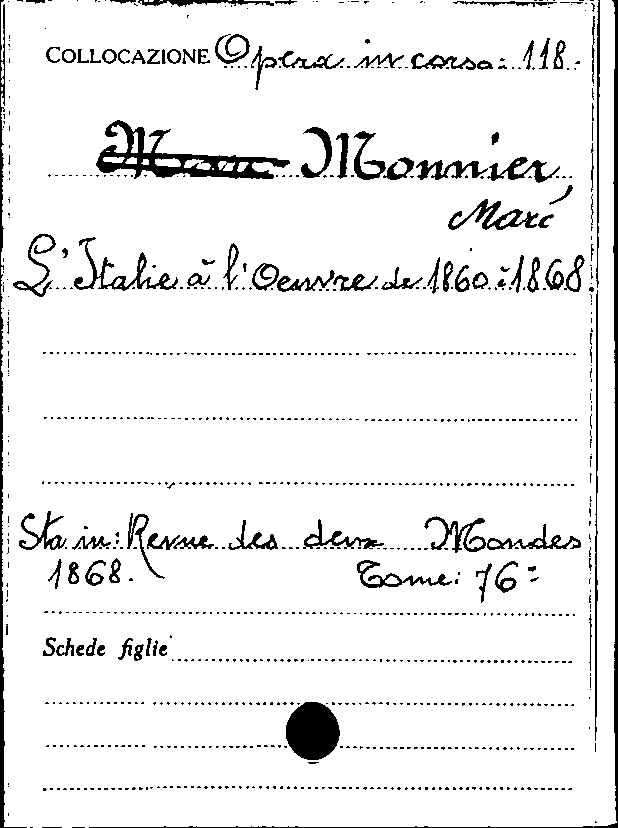 COLLOCAZIONE Opera in corso: 118.
Marc Monnier,
Marc
L'Italie à l'Oeuvre de 1860 à 1868.
Sta in: Revue des deux Mondes
1868. Tome: 76=
Schede figlie